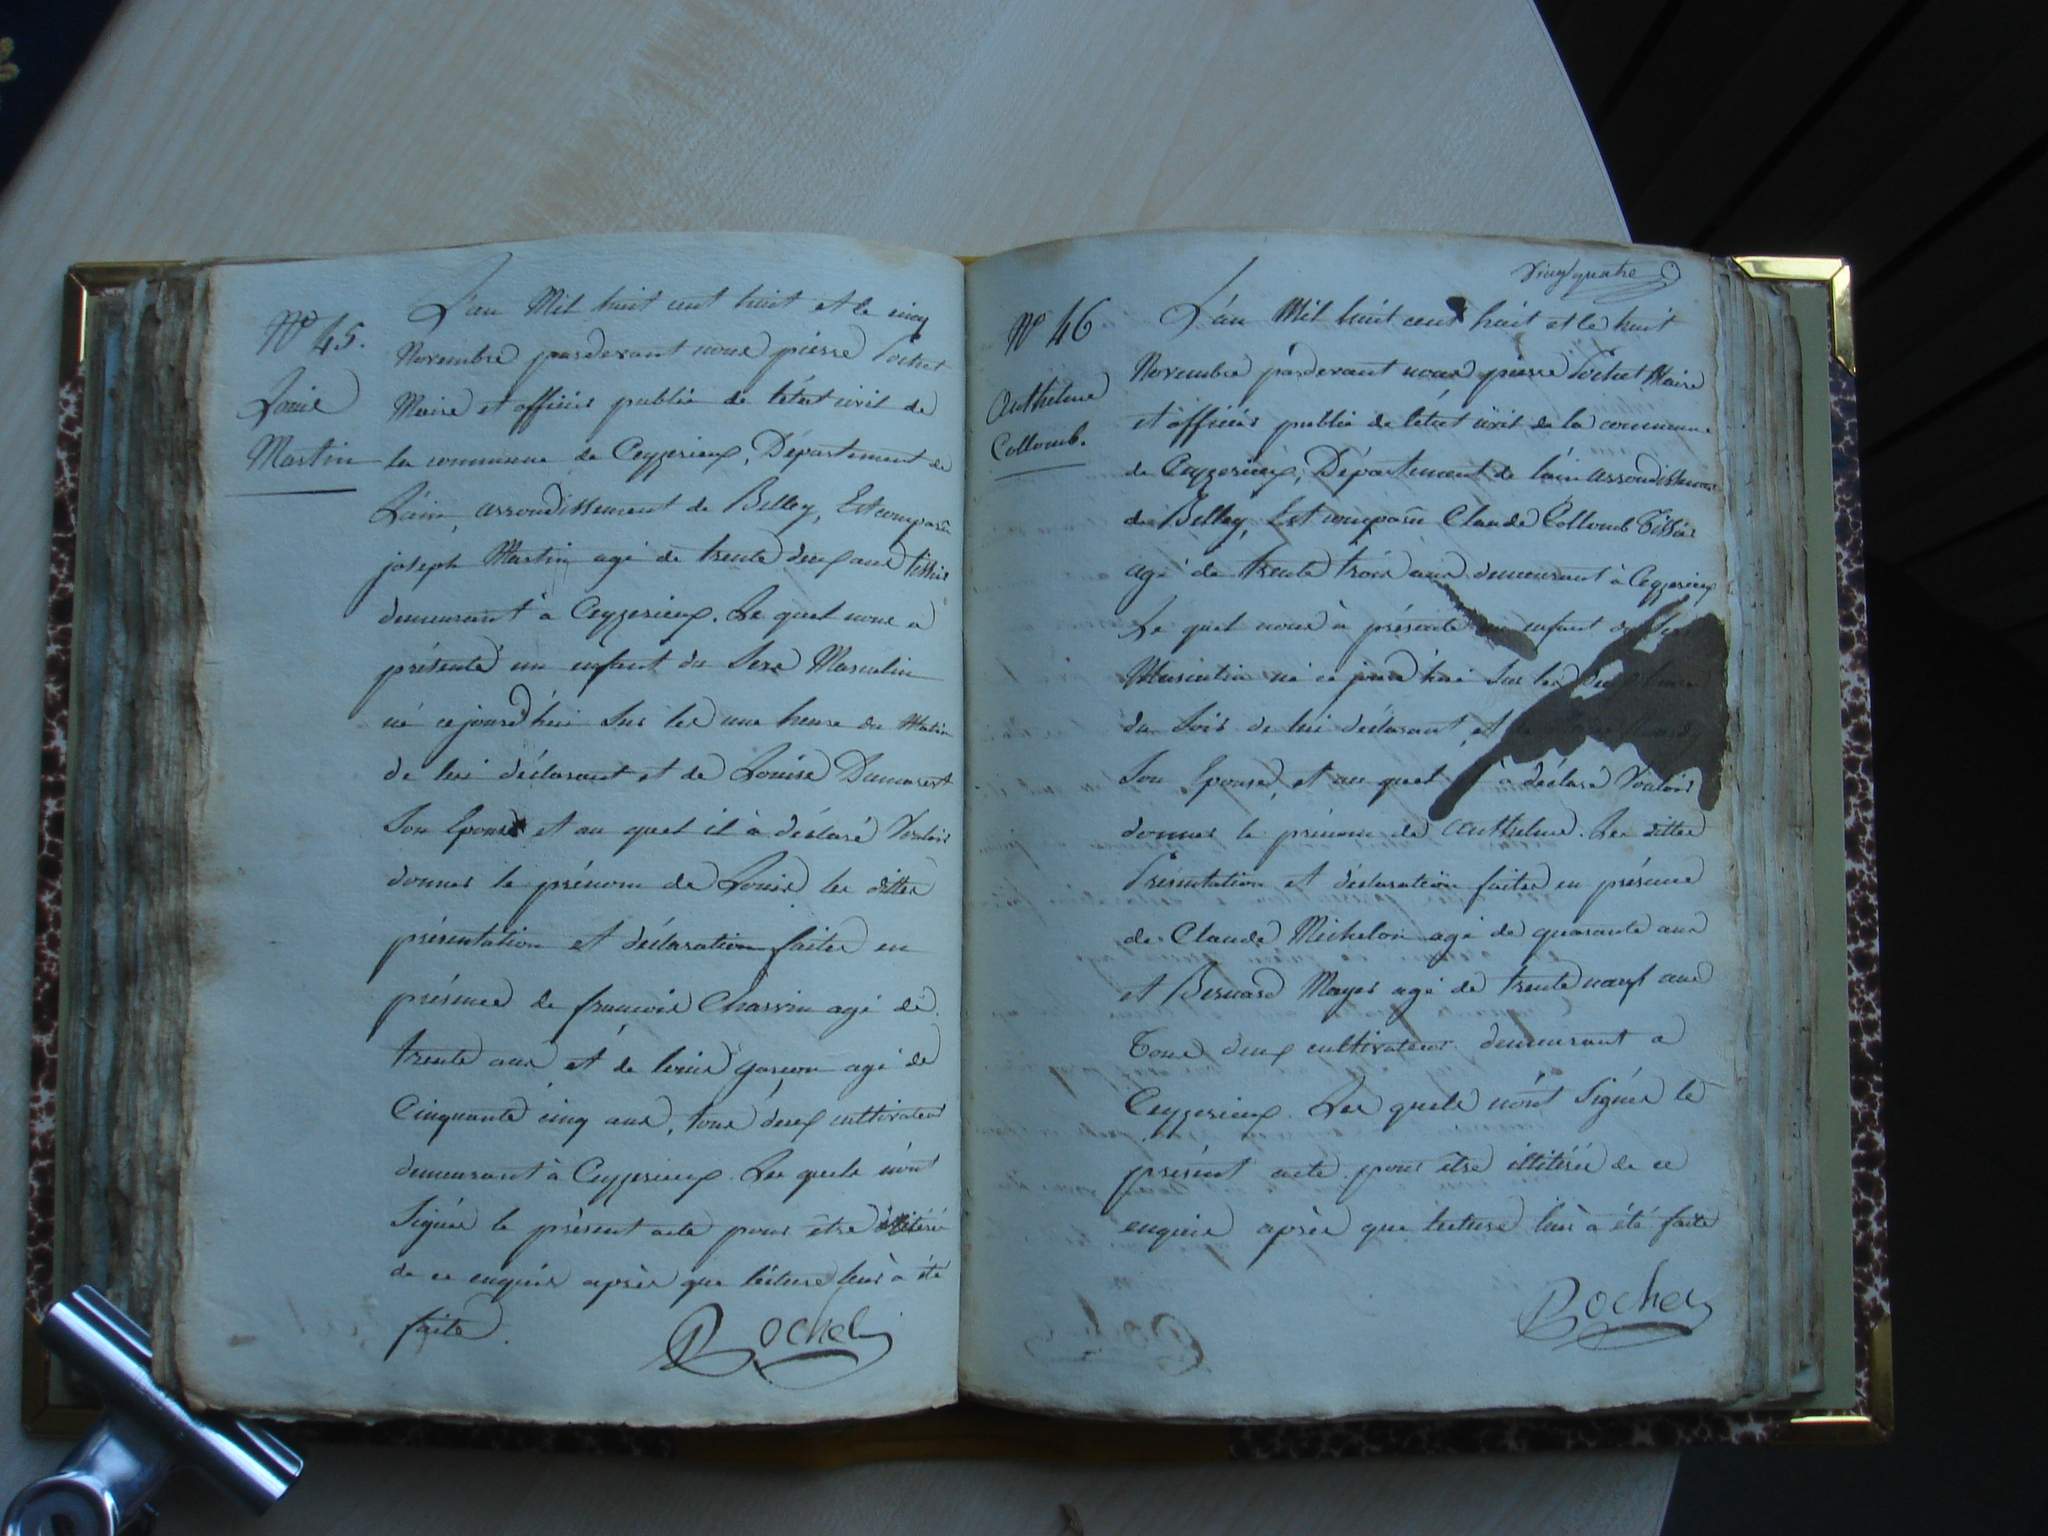 N° 45.
Louis
Martin
L'an Mil huit cent huit et le cinq
Novembre pardevant nous pierre Pochet
Maire et officier public de l'état civil de
la commune de Ceyzerieux, Département de
L'ain, arrondissement de Belley, Est comparu
joseph Martin agé de trente deux ans tissier
demeurant à Ceyzerieux. Le quel nous a
présenté un enfant du Sexe Masculin
né cejourd'hui sur les une heure du Matin
de lui déclarant et de Louise Dumarest
Son Epouse et au quel il à déclaré Vouloir
donner le prénom de Louis les dittes
présentation et déclaration faites en
présence de françois Charvin agé de
trente ans et de louis gascon agé de
Cinquante cinq ans, tous deux cultivateurs
demeurant à Ceyzerieux. Les quels n'ont
Signés le présent acte pour être
de ce enquis après que lecture leur à été
faite.
Bochet
Vingt quatre
N° 46
Anthelme
Collomb.
L'an Mil huit cent huit et le huit
Novembre pardevant nous pierre Pochet Maire
et officier public de l'état civil de la commune
de Ceyzerieux, Département de l'ain arrondissement
de Belley, Est comparu Claude Collomb Tissier
agé de trente trois ans demeurant à Ceyzerieux
Le quel nous à présenté un enfant du Sexe
Masculin né ce jourd'hui sur les Deux heures
du Soir de lui déclarant et de
Son Epouse, et au quel à déclaré Vouloir
donner le prénom de Anthelme. Les dittes
Présentation et déclaration faites en présence
de Claude Michelon agé de quarante ans
et Bernard Mayer agé de trente neuf ans
Tous deux cultivateurs demeurant a
Ceyzerieux. Les quels n'ont Signés le
présent acte pour être illitérés de ce
enquis après que lecture leur à été faite
Bochet